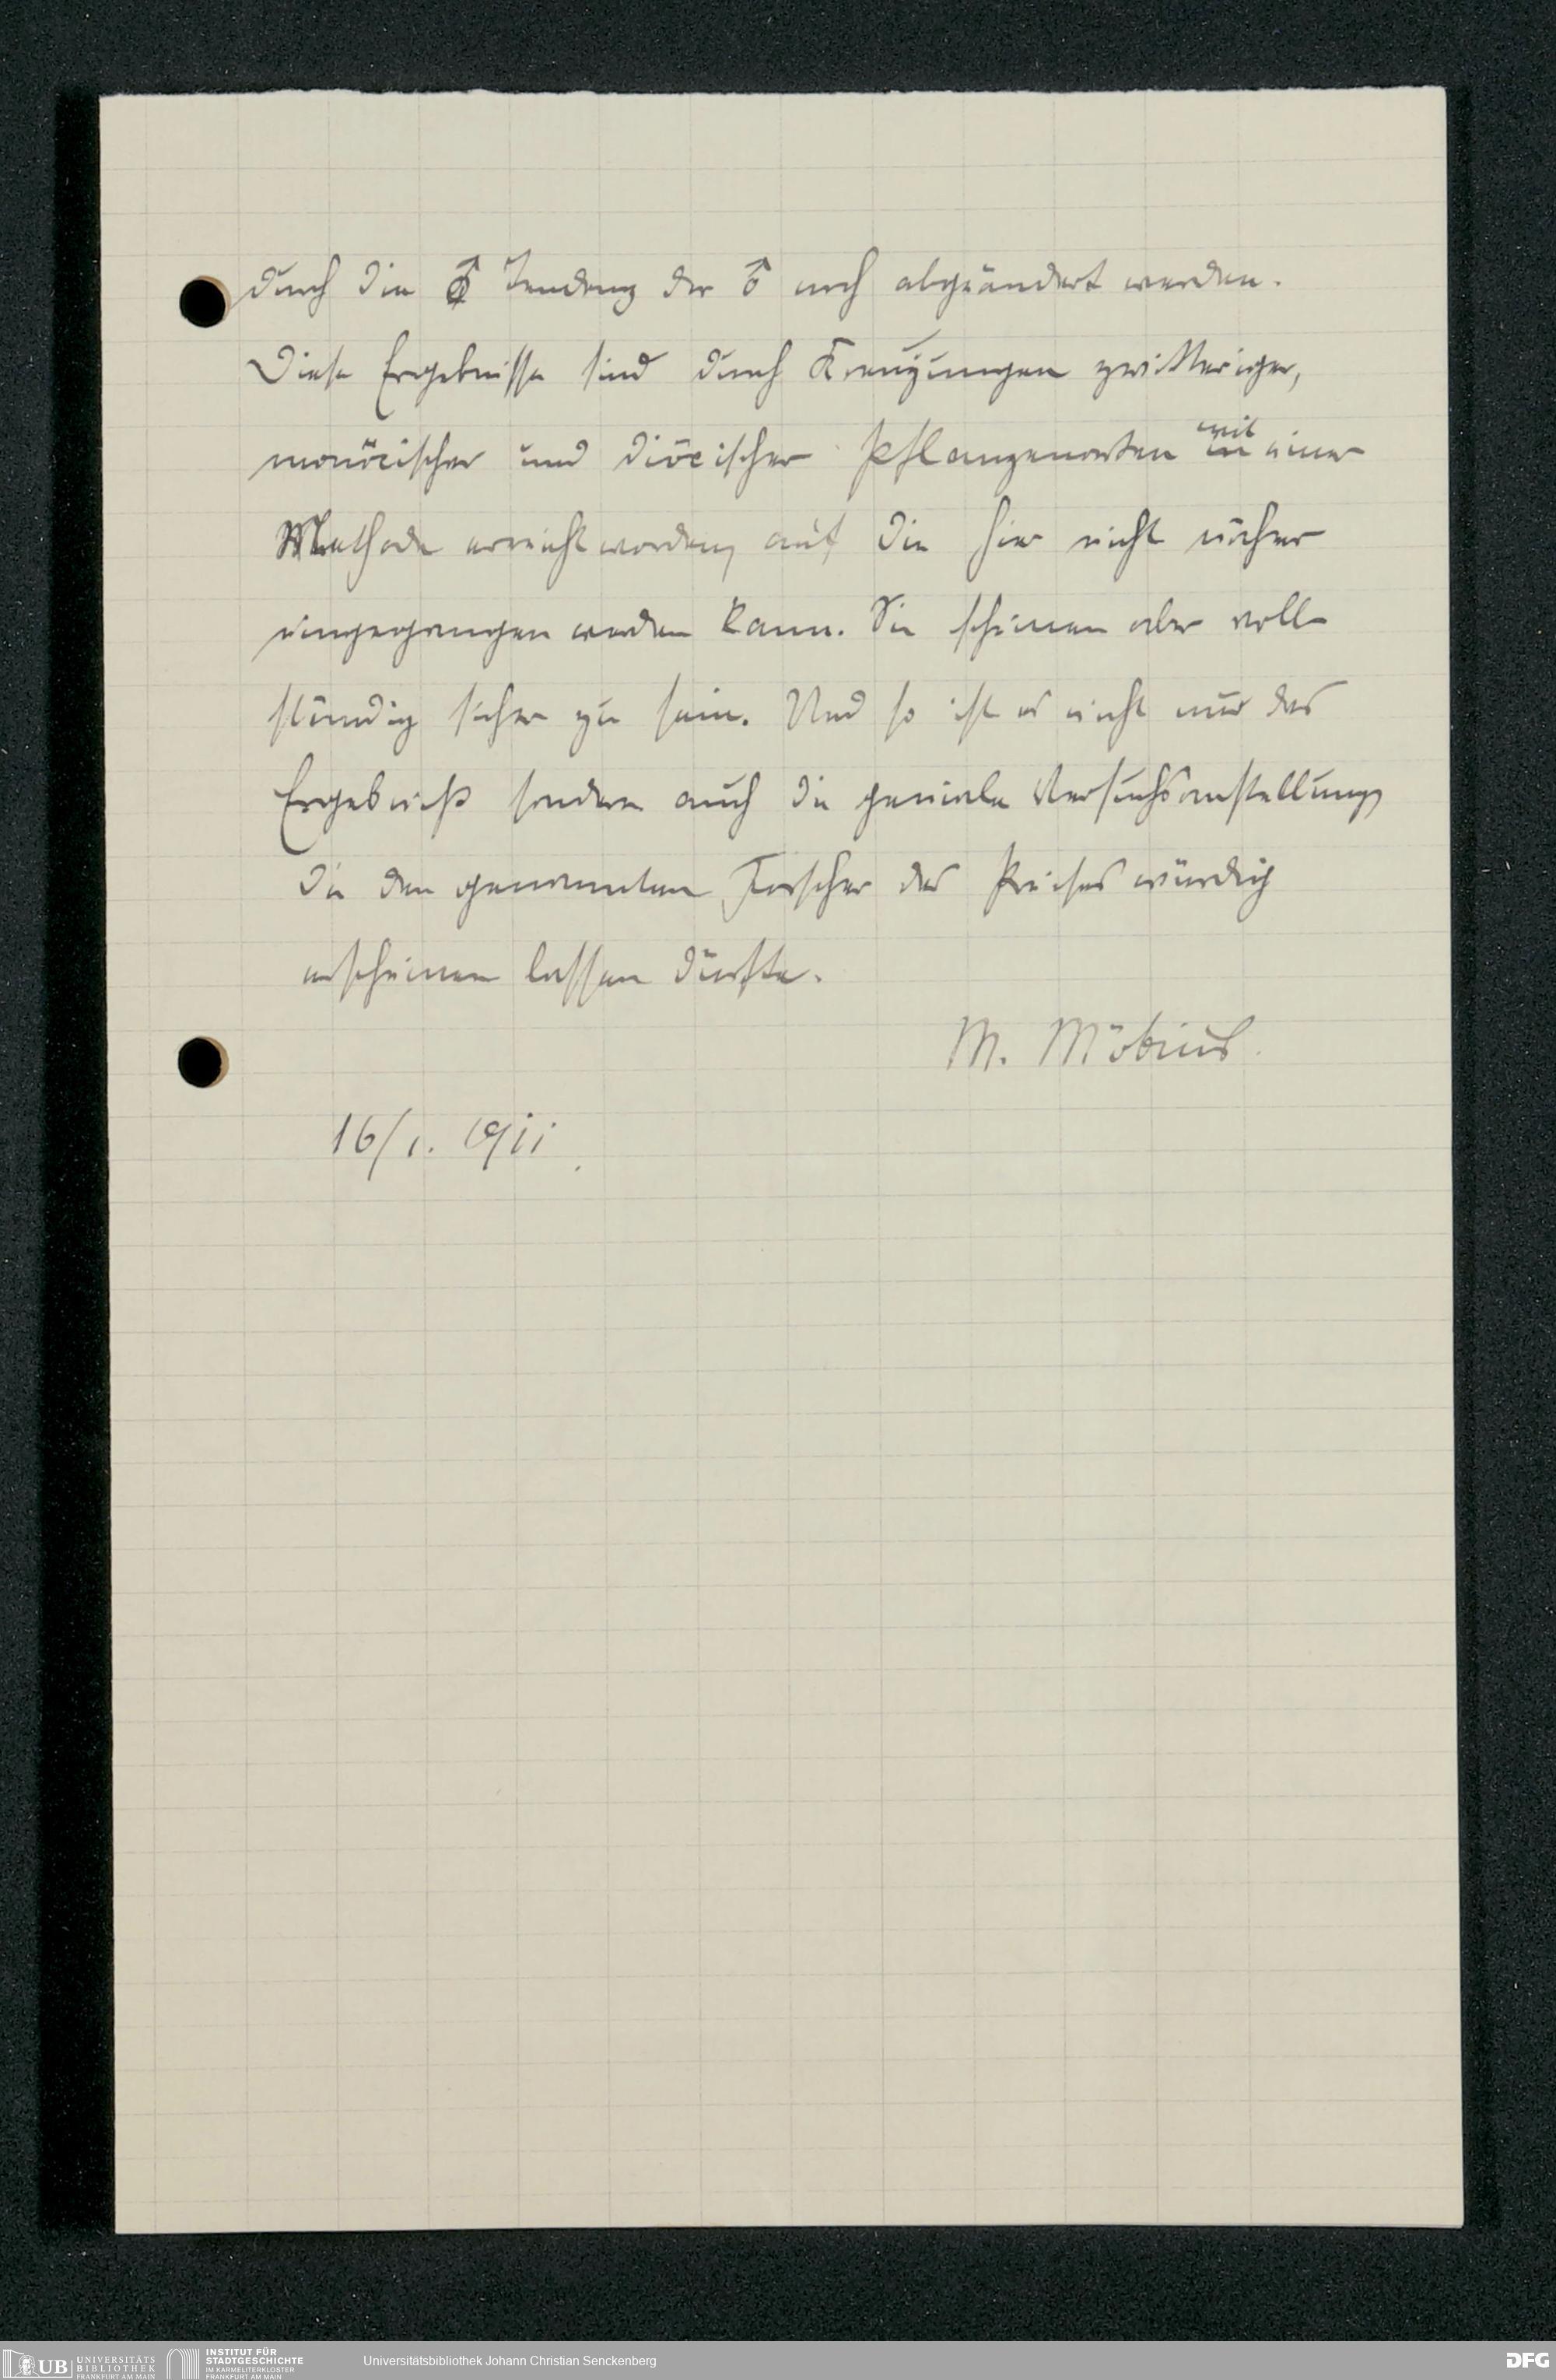 durch die ♂ Tendenz der ♂ noch abgeändert werden.
Diese Ergebnisse sind durch Kreuzungen zwitteriger,
monöcischer und diöcischer Pflanzenarten mit einer
Methode erreicht worden, auf die hier nicht näher
eingegangen werden kann. Sie scheinen aber voll-
ständig sicher zu sein. Und so ist es nicht nur das
Ergebniß sondern auch die geniale Versuchsanstellung,
die den genannten Forscher des Preises würdig
erscheinen lassen dürfte.
M. Möbius.
16/1. 1911.
UB UNIVERSITÄTS BIBLIOTHEK FRANKFURT AM MAIN
INSTITUT FÜR STADTGESCHICHTE IM KARMELITERKLOSTER FRANKFURT AM MAIN
Universitätsbibliothek Johann Christian Senckenberg
DFG